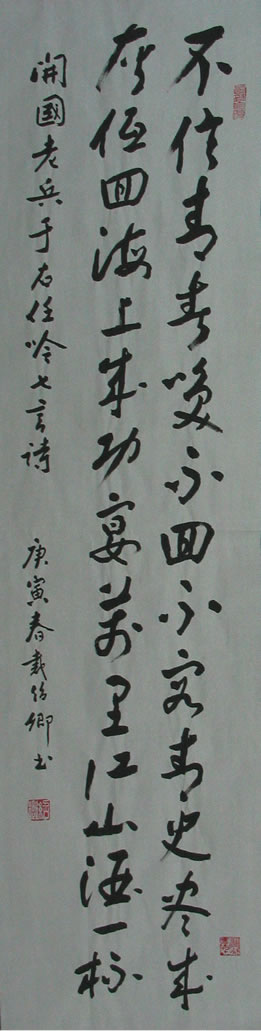 不信青春喚不回不容青史尽成
灰低回海上成功宴萬里江山酒一杯
開國老兵于右任吟七言詩 庚寅春戴卿书